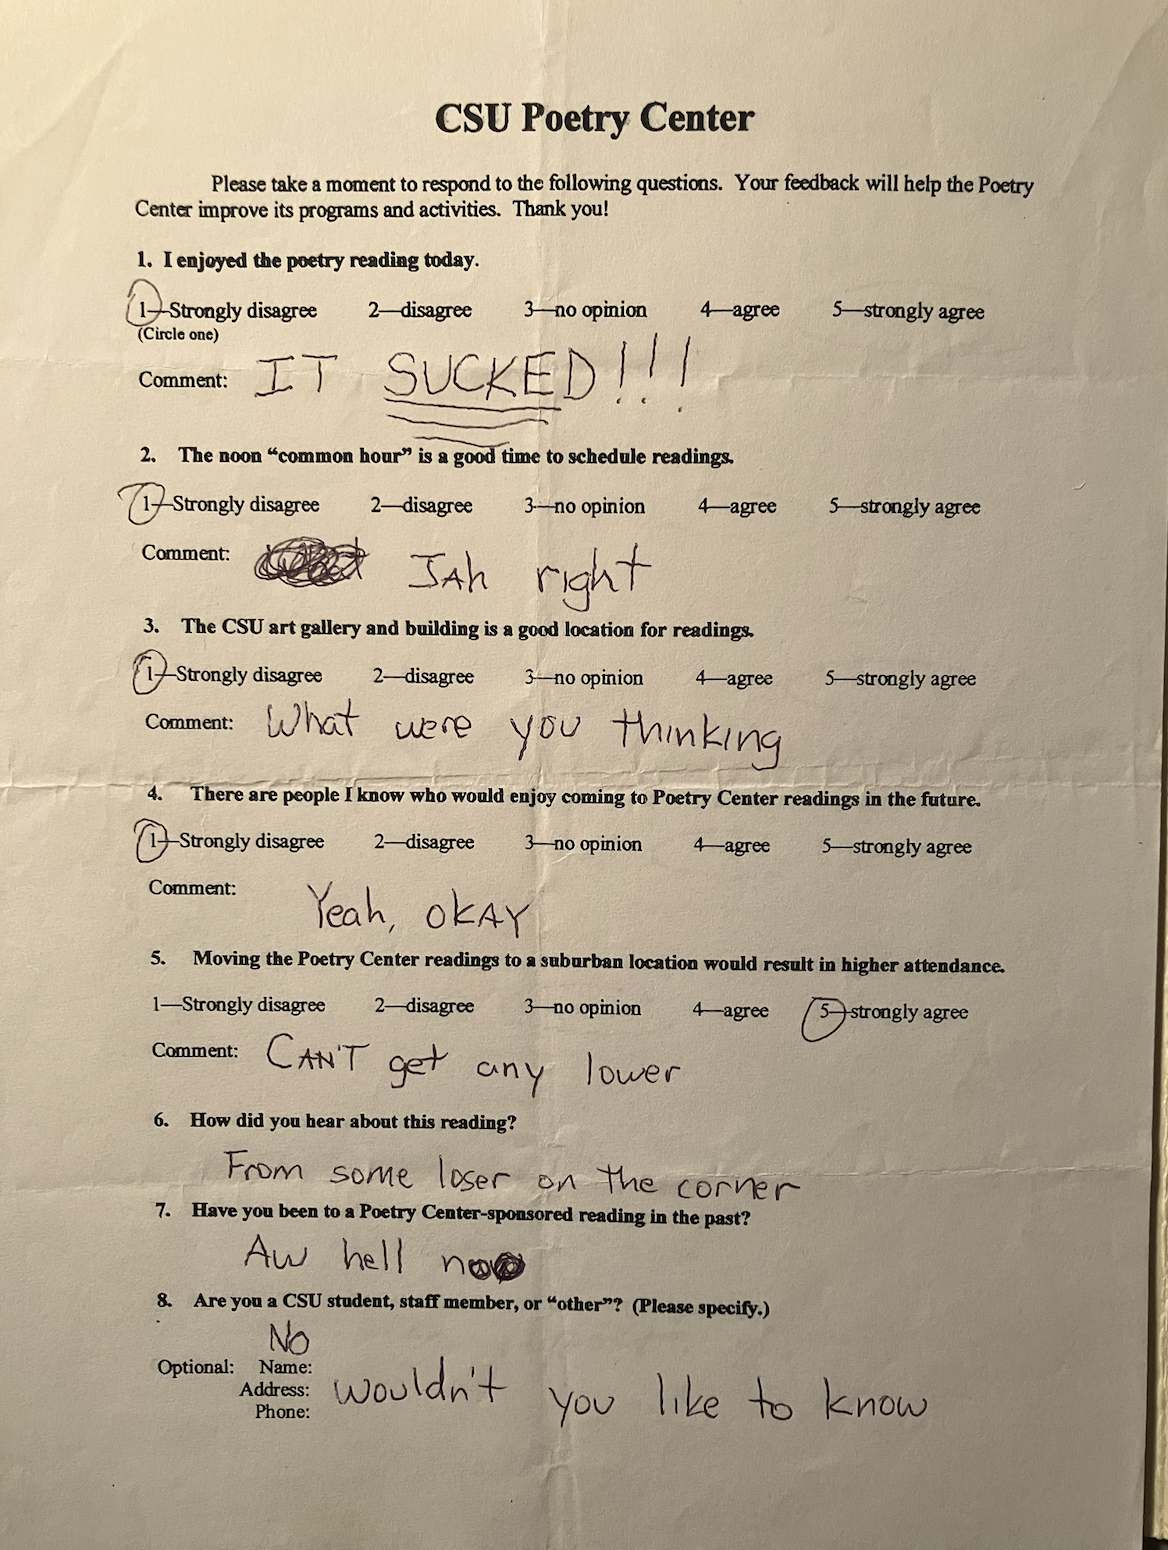 CSU Poetry Center
Please take a moment to respond to the following questions. Your feedback will help the Poetry
Center improve its programs and activities. Thank you!
1. I enjoyed the poetry reading today.
1—Strongly disagree 2—disagree 3—no opinion 4—agree 5—strongly agree
(Circle one)
Comment: IT SUCKED!!!
2. The noon “common hour” is a good time to schedule readings.
1—Strongly disagree 2—disagree 3—no opinion 4—agree 5—strongly agree
Comment: JAh right
3. The CSU art gallery and building is a good location for readings.
1—Strongly disagree 2—disagree 3—no opinion 4—agree 5—strongly agree
Comment: What were you thinking
4. There are people I know who would enjoy coming to Poetry Center readings in the future.
1—Strongly disagree 2—disagree 3—no opinion 4—agree 5—strongly agree
Comment:
Yeah, OKAY
5. Moving the Poetry Center readings to a suburban location would result in higher attendance.
1—Strongly disagree 2—disagree 3—no opinion 4—agree 5—strongly agree
Comment: CAN'T get any lower
6. How did you hear about this reading?
From some loser on the corner
7. Have you been to a Poetry Center-sponsored reading in the past?
Aw hell no
8. Are you a CSU student, staff member, or “other”? (Please specify.)
No
Optional: Name:
Address: Wouldn't you like to know
Phone: